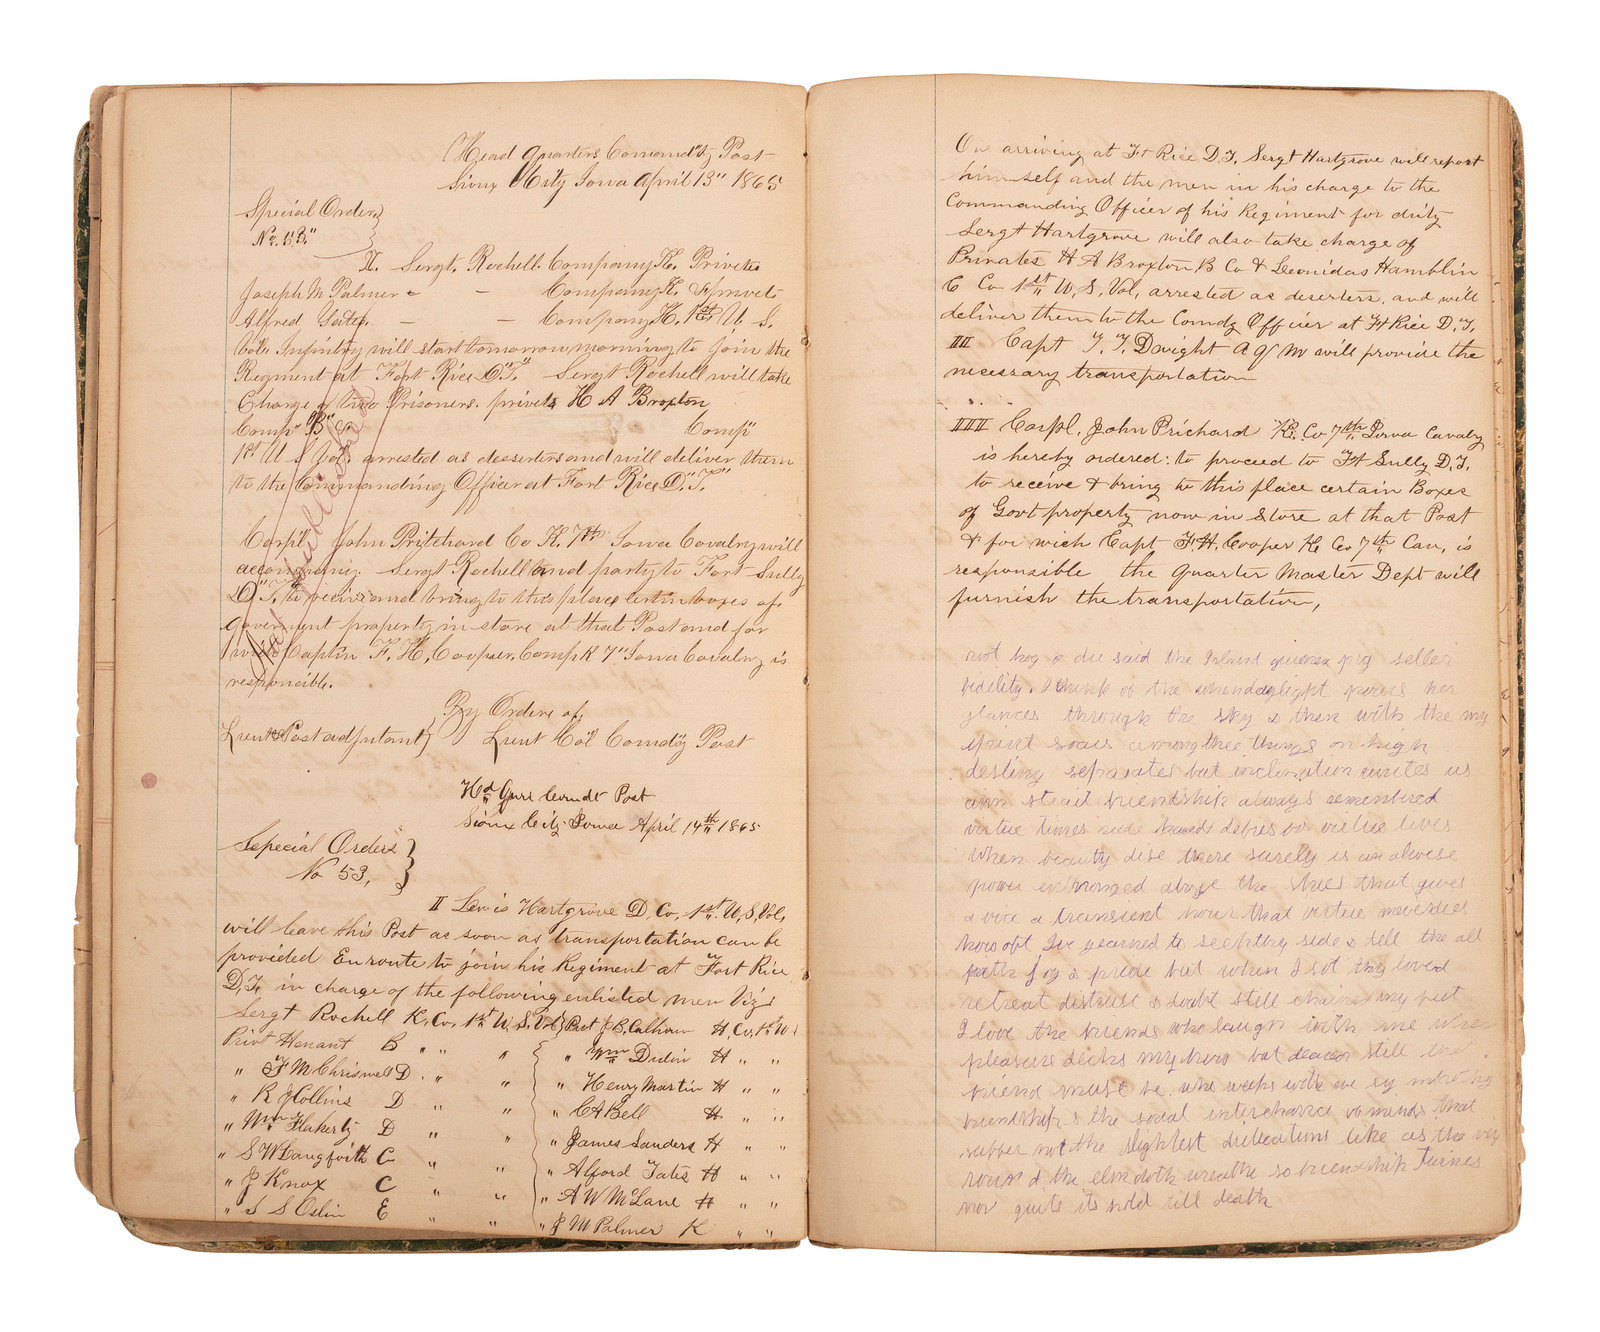 Head Quarters Comandg Post
Sioux City Iowa April 13" 1865
Special Order
No. 53."
II. Sergt. Rochell. Company K. Privates
Joseph M Palmer " - Company K. & privet
Alfred Yates. - - Company H. 1st U. S.
Vols. Infintry will start tomorrow morning to join the
Regment at Fort Rice D."T." Sergt Rochell will take
Charge of two Prisoners. privets H A Broxton
Comp" "B" Co Comp"
1st U S Vol. arrested as desserters and will deliver them
to the Commanding Officer at Fort Rice D."T."
Corpl, John Pritchard Co K. 7th Iowa Cavalry will
accompany. Sergt Rochell and party to Fort Sully
D"T," to recive and bring to this place certin boxes of
government property in store at that Post and for
wich Captin F. H. Cooper. Comp K 7" Iowa Cavalry is
responcible.
By Orders of
Lieut Post adjutant Lieut Col Comdg Post
Hd Qurs Comdt Post
Sioux City Iowa April 14th 1865
Special Orders
No 53,
II Lewis Hartgrove D, Co, 1st U, S, Vol,
will leave this Post as soon as transportation can be
provided Enroute to join his Regiment at Fort Rice
D,T, in charge of the following enlisted men Viz;
Sergt Rochell K, Co, 1st U, S, Vol Privt J B, Calhoun H, Co, 1st U S
Privt Henant B " " " " Wm Dulin H " "
" F M Chriswell D " " " Henry Martin H " "
" R J Collins D " " " C A Bell H " "
" Wm Flaherty D " " " James Sanders H " "
" S W Langfoith C " " " Alford Yates H " "
" J Knox C " " " A W McLane H " "
" S S Oslin E " " " J M Palmer K " "
On arriving at Ft Rice D.T. Sergt Hartgrove will report
himself and the men in his charge to the
Commanding Officer of his Regiment for duty
Sergt Hartgrove will also take charge of
Privates H A Broxton B Co & Leonidas Hamblin
C Co 1st U, S, Vol, arrested as deserters, and will
deliver them to the Comdg Officer at Ft Rice D.T.
III Capt T. T. Dwight A Q M will provide the
necessary transportation
IIII Corpl. John Prichard K. Co 7th Iowa Cavalry
is hereby ordered to proceed to Ft Sully D.T.
to receive & bring to this place certain Boxes
of Govt property now in Store at that Post
& for wich Capt F. H. Cooper K Co 7th Cav, is
responsible the Quarter Master Dept will
furnish the transportation,
root hog o die said the pig seller
fidelity. I think of the when daylight pours her
glances through the sky & then with the my
spirit soars among the things on high
destiny separates but inclination unites us
strait friendship always remembered
virtue times rude hand defies as virtue lives
when beauty dise there surely is an
power enthroned above the that gives
a transient hour that virtue
how oft Ive yearned to seek thy side & tell the all
with joy & pride but when I sot thy loved
retreat distrust & doubt still chains my feet
I love the friends who laugh with me when
pleasure decks my brow but dearer still that
friend must be who weeps with me
friendship is the social interchance that
suffer not the slightest like as the
round the elm doth wreathe so friendship twines
nor quits its hold till death